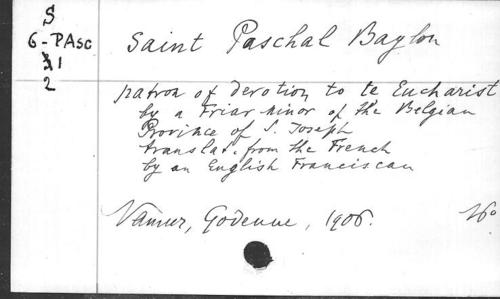 S
6-PAsc
31
2
Saint Paschal Baylon
patron of devotion to te Eucharist
by a Friar minor of the Belgian
Province of S. Joseph
translat. from the French
by an English Franciscan
Namur, Godenne, 1906. 16°